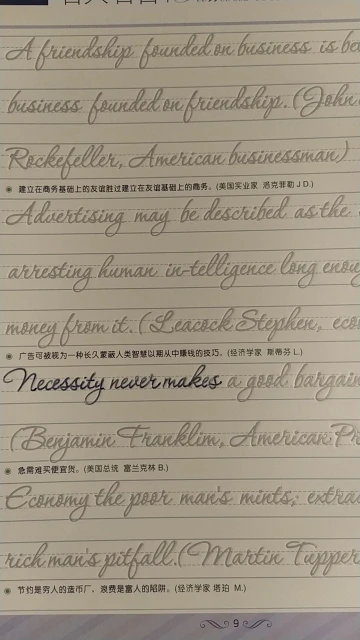 A friendship founded on business is
business founded on friendship. (John
Rockefeller, American businessman)
建立在商务基础上的友谊胜过建立在友谊基础上的商务。(美国实业家 洛克菲勒 J D.)
Advertising may be described as the
arresting human in-telligence long
money from it. (Leacock Stephen,
广告可被视为一种长久蒙蔽人类智慧以期从中赚钱的技巧。(经济学家 斯蒂芬 L.)
Necessity never makes a good bargain
(Benjamin Franklim, American
急需难买便宜货。(美国总统 富兰克林 B.)
Economy the poor man's mints;
rich man's pitfall.(Martin Tupper
节约是穷人的造币厂，浪费是富人的陷阱。(经济学家 塔珀 M.)
9